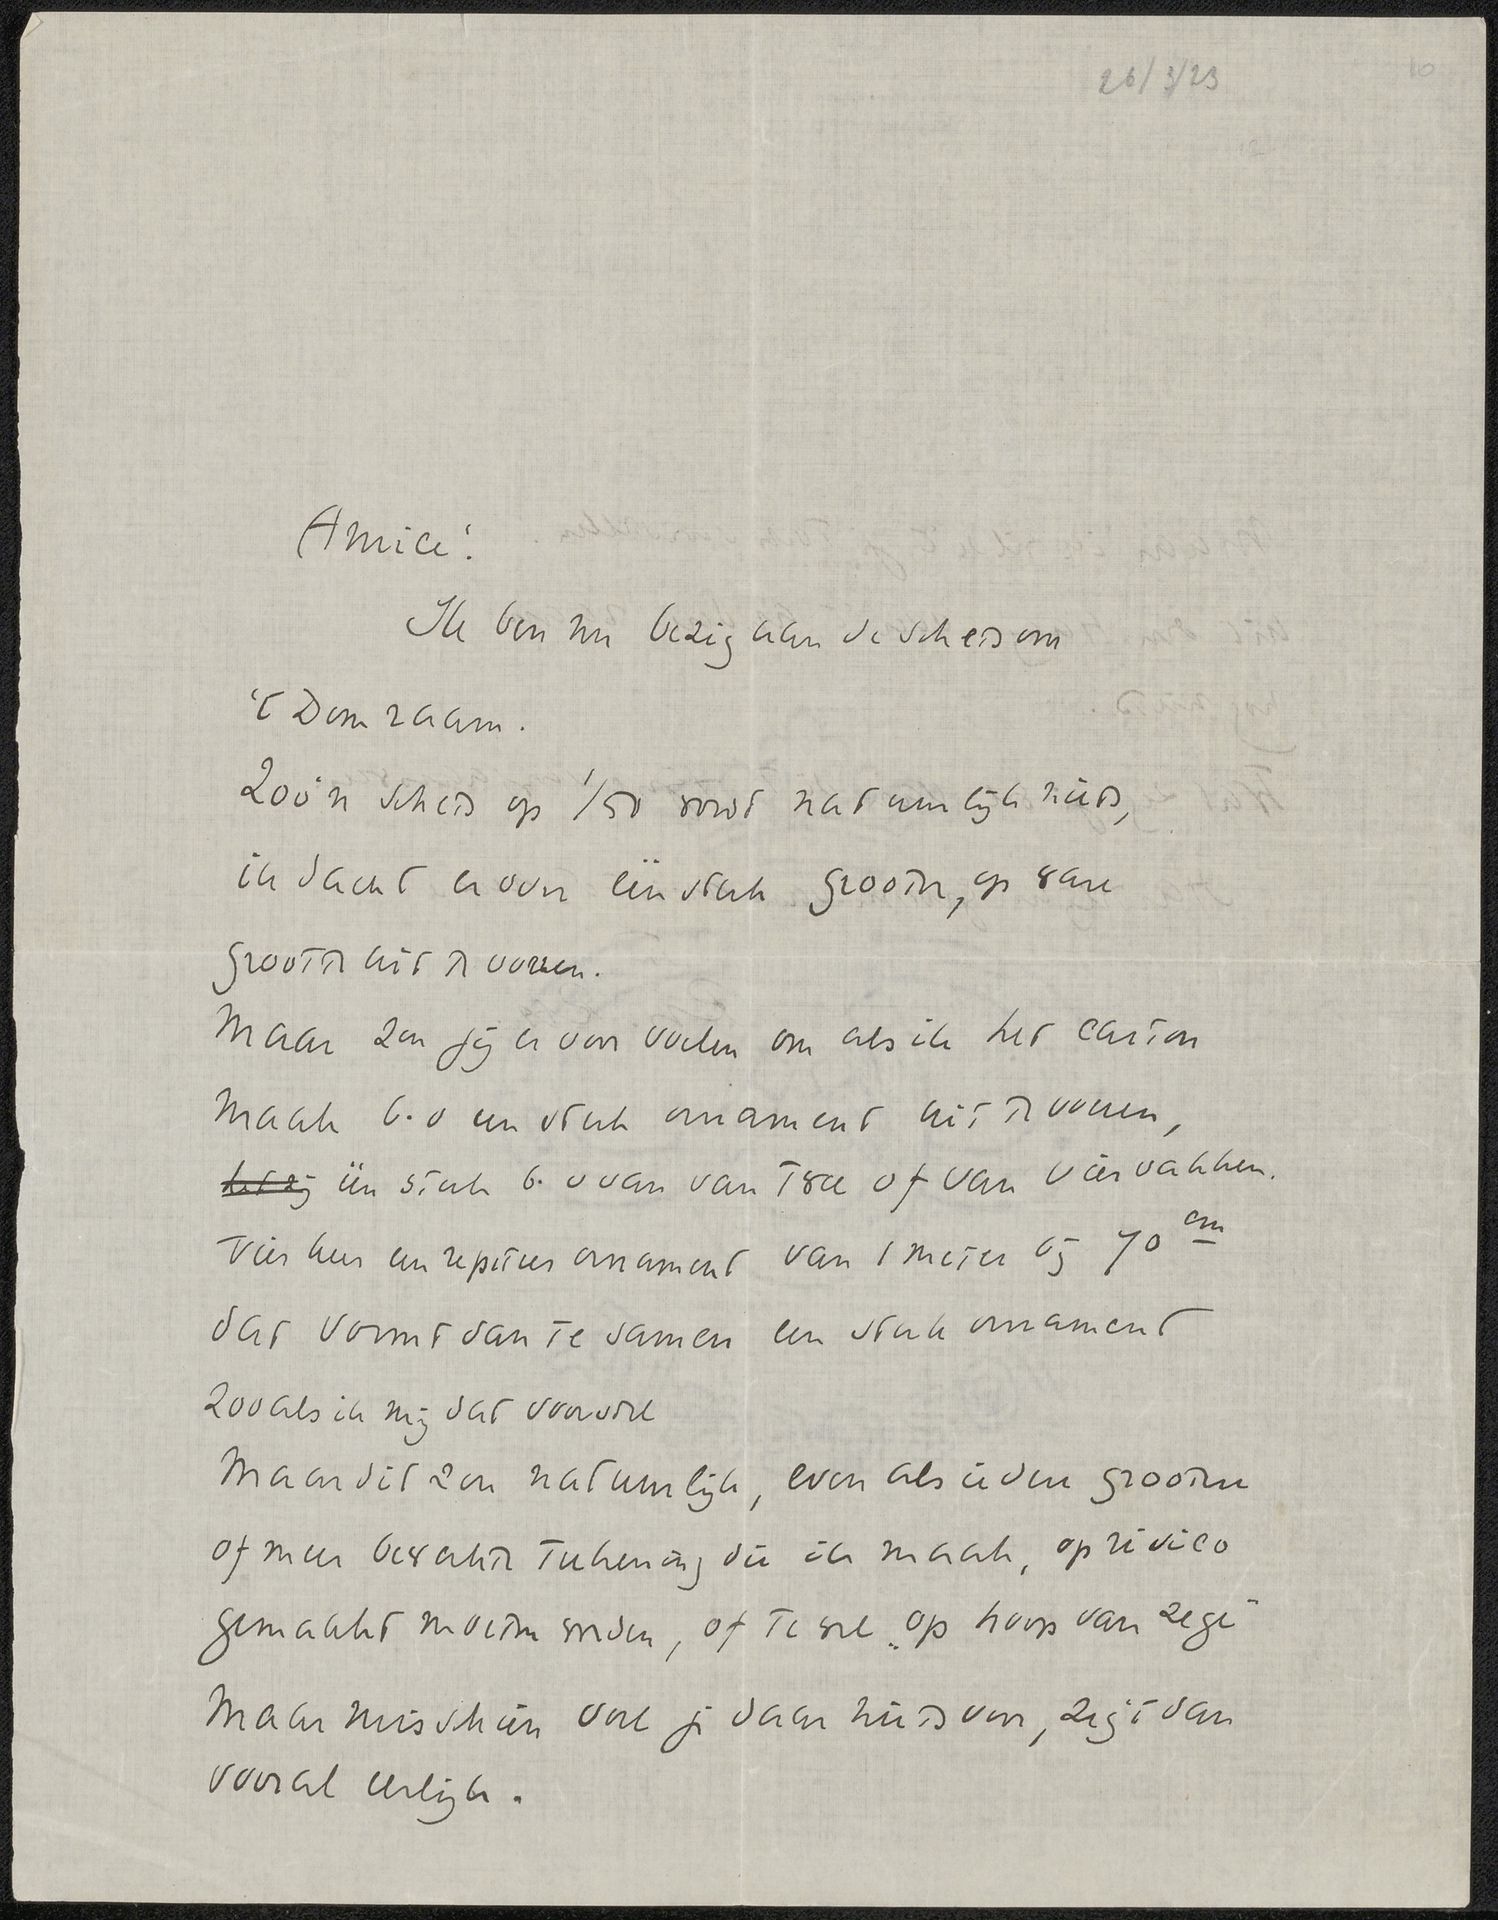 26/3/23
10
12
Amice!
Ik ben nu bezig aan de schets om
't Domraam.
Zoo'n schets op 1/50 wordt natuurlijk niets,
ik dacht er over één stuk grooter, op ware
grootte uit te voeren.
Maar zou jij er voor voelen om als ik het carton
maak b.v een stuk ornament uit te voeren,
het zij één stuk b.v van van twee of van vier vakken.
Vier keer een repeteer ornament van 1 meter bij 70 cm
dat vormt dan te samen een stuk ornament
zooals ik mij dat voorstel
Maar dit zou natuurlijk, even als iedere grootere
of meer bewerkte teekening die ik maak, op risico
gemaakt moeten worden, of te wel „op hoop van zege"
Maar misschien voel je daar niets voor, zegt dan
vooral eerlijk.